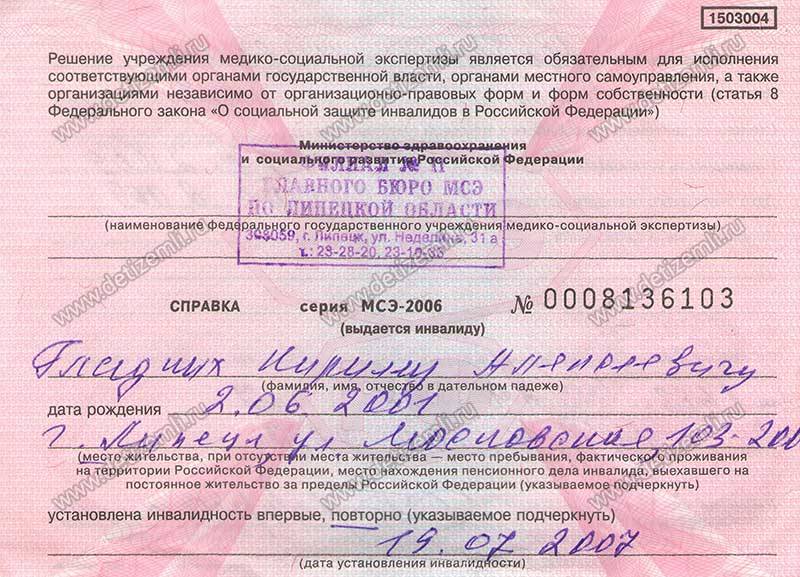 1503004
Решение учреждения медико-социальной экспертизы является обязательным для исполнения
соответствующими органами государственной власти, органами местного самоуправления, а также
организациями независимо от организационно-правовых форм и форм собственности (статья 8
Федерального закона «О социальной защите инвалидов в Российской Федерации»)
Министерство здравоохранения
и социального развития Российской Федерации
ФИЛИАЛ № 11
ГЛАВНОГО БЮРО МСЭ
ПО ЛИПЕЦКОЙ ОБЛАСТИ
(наименование федерального государственного учреждения медико-социальной экспертизы)
г. Липецк, ул. Неделина, 31 а
т.: 23-28-20,
СПРАВКА серия МСЭ-2006 № 0008136103
(выдается инвалиду)
Кириллу
(фамилия, имя, отчество в дательном падеже)
дата рождения 2.06 2001
г. Липецк ул Московская 103-200
(место жительства, при отсутствии места жительства — место пребывания, фактического проживания
на территории Российской Федерации, место нахождения пенсионного дела инвалида, выехавшего на
постоянное жительство за пределы Российской Федерации (указываемое подчеркнуть)
установлена инвалидность впервые, повторно (указываемое подчеркнуть)
19.07 2007
(дата установления инвалидности)
www.detizemli.ru